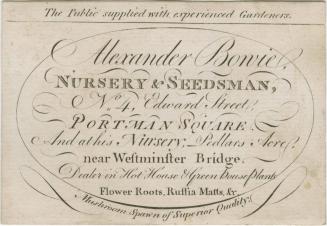 The Public supplied with experienced Gardeners.
Alexander Bowie,
NURSERY & SEEDSMAN,
No. 4, Edward Street,
PORTMAN SQUARE,
And at his Nursery, Pedlars Acre,
near Westminster Bridge.
Dealer in Hot House & Green house plants
Flower Roots, Ruſsia Matts, &c.
Mushroom Spawn of Superior Quality.